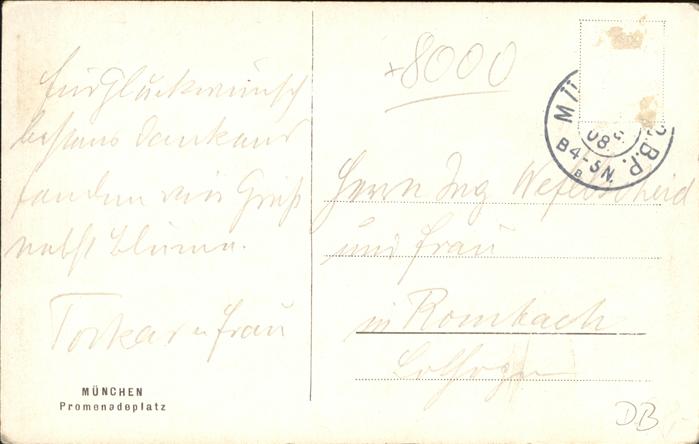 für Glückwünsch
bestens dankend
senden wir Gruß
nebst Blume.
Torkar u Frau
MÜNCHEN
Promenadeplatz
+8000
MÜ
08
B.P.
B4-5N.
B
Herrn Ing Wefelscheid
und Frau
in Rombach
Lothringen
DB